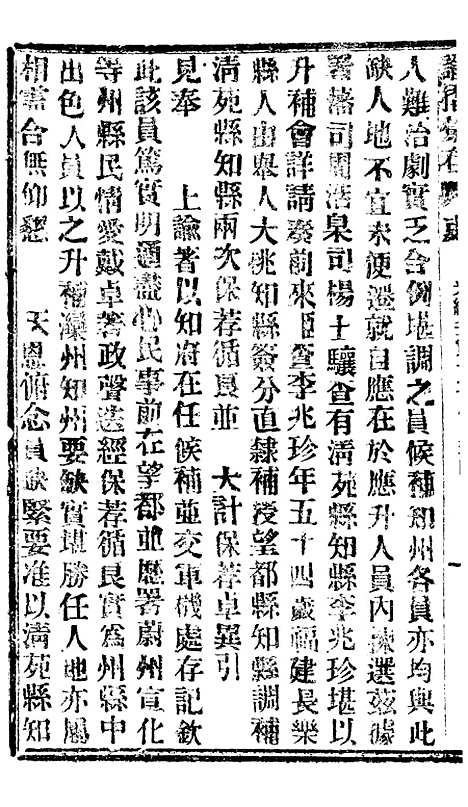 人難治劇實乏合例堪調之員候補知州各員亦均與此
缺人地不宜未便遷就自應在於應升人員內揀選茲據
署藩司周浩臬司楊士驤查有淸苑縣知縣李兆珍堪以
升補會詳請奏前來臣查李兆珍年五十四歲福建長樂
縣人由舉人大挑知縣簽分直隸補授望都縣知縣調補
淸苑縣知縣兩次保荐循良並 大計保荐卓異引
見奉 上諭著以知府在任候補並交軍機處存記欽
此該員篤實明通盡心民事前在望都並歷署蔚州宣化
等州縣民情愛戴卓著政聲迭經保荐循良實爲州縣中
出色人員以之升補灤州知州要缺實堪勝任人地亦屬
相需合無仰懇 天恩俯念員缺緊要准以淸苑縣知